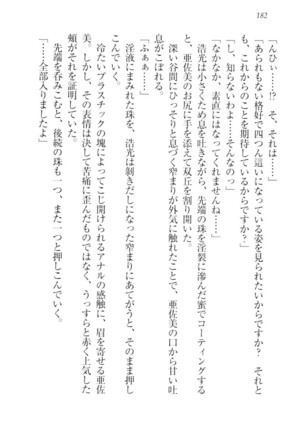 182
「んひぃ……!?　そ、それは……」
「あられもない格好で四つん這いになっている姿を見られたいからですか？　それと
も、これからのことを期待しているからですか？」
「し、知らないわよ……そんなのっ」
「なかなか、素直にはなってくれませんね……」
浩光は小さくため息を吐きながら、先端の珠を淫裂に滲んだ蜜でコーティングする
と、亜佐美のお尻に手を添えて双丘を割り開いた。
深い谷間にひっそりと息づく窄まりが外気に触れたことで、亜佐美の口から甘い吐
息がこぼれる。
「ふぁぁ……」
淫液にまみれた珠を、浩光は剝きだしになった窄まりにあてがうと、そのまま押し
こんでいく。
冷たいプラスチックの塊によってこじ開けられるアナルの感触に、眉を寄せる亜佐
美。しかし、その表情は決して苦痛に歪んだものではなく、うっすらと赤く上気した
頰がそれを証明していた。
先端を呑みこむと、後続の珠も一つ、また一つと押しこんでいく。
「……全部入りましたよ」